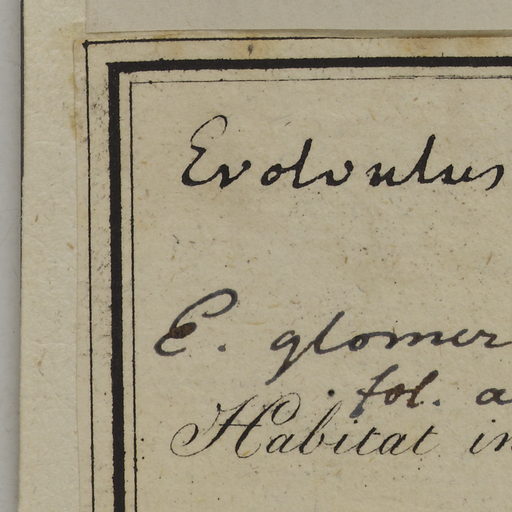 Evolvulus
E. glomer
fol. a
Habitat in